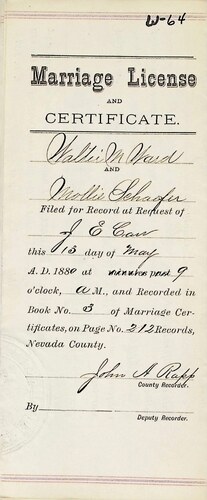 W-64
Marriage License
AND
CERTIFICATE.
Walter M Ward
AND
Mollie Schaefer
Filed for Record at Request of
J E Carr
this 15 day of May
A. D. 1880 at minutes past 9
o'clock, A M., and Recorded in
Book No. 3 of Marriage Cer-
tificates, on Page No. 212 Records,
Nevada County.
John A Rapp
County Recorder.
By
Deputy Recorder.